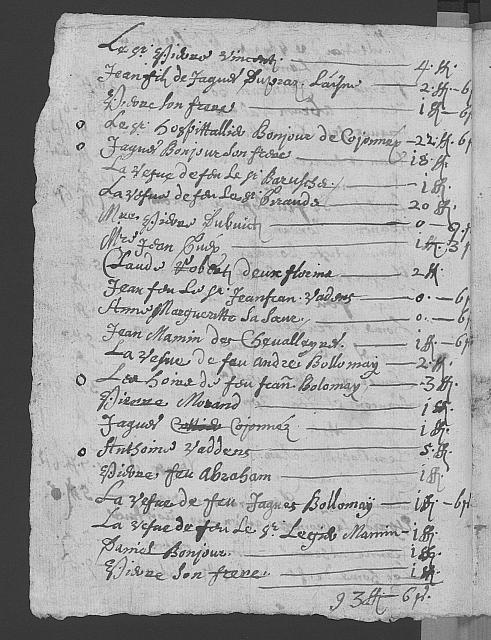 Le Sr. Pierre Vincent — 4 ff.
Jean filz de Jaques Dupraz Laysne — 2 ff — 6 s
Pierre son frere — 1 ff — 6 s
o Le Sr. Hospittallier Bonjour de Cojonnex — 22 ff. 6 s
o Jaques Bonjour son frere — 18 ff
La vefve de feu le Sr. — 1 ff.
La vefve de feu le Sr. Girauda — 20 ff
Mre. Pierre — 0 — 9 s.
Mre Jean — 1 ff 3 s
Claude deux florins — 2 ff
Jean feu le Sr. Jean fran. Vadens — 0. — 6 s
Anne Margueritte sa sœur — 0. — 6 s
Jean Mamin des Chevalleyres — 1 ff — 6 s
La vefve de feu André Bollomay — 2 ff.
o Les hoires de feu fran. Bolomay — 3 ff.
Pierre Morand — 1 ff.
Jaques Cojonnex — 1 ff.
o Anthoine Vaddens — 5 ff.
Pierre feu Abraham — 1 ff
La vefve de feu Jaques Bollomay — 1 ff — 6 s
La vefve de feu le Sr. Mamin — 1 ff.
Daniel Bonjour — 1 ff.
Pierre son frere — 1 ff.
93 ff — 6 s.